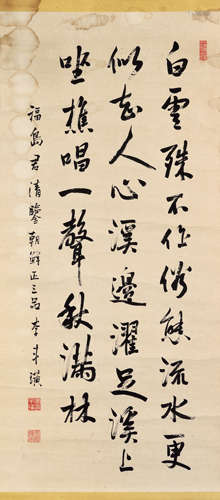 白雲殊不作俗態流水更
似知人心溪邊濯足溪上
坐樵唱一聲秋滿林
福島君清鑒朝鮮正三品李璜